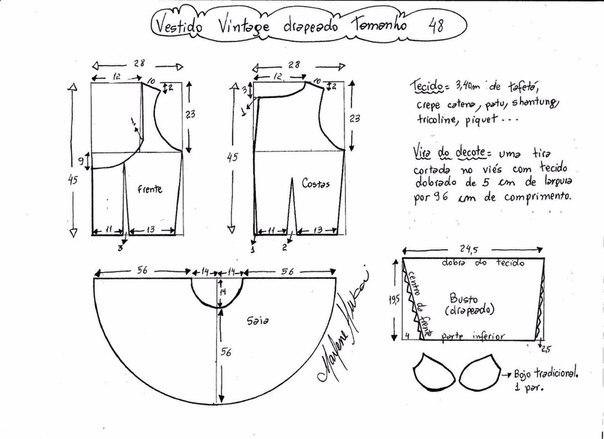 Vestido Vintage drapeado Tamanho 48
28
12
10
2
23
9
45
Frente
11
13
3
28
12
10
2
3
1
23
45
Costas
11
13
1
2
Tecido= 3,40m de tafetá,
crepe catena, patu, shantung,
tricoline, piquet ...
Vira do decote= uma tira
cortada no viés com tecido
dobrado de 5 cm de largura
por 96 cm de comprimento.
56
14
14
56
14
Saia
56
Marlene Mukai
24,5
dobra do tecido
19,5
centro da frente
Busto
(drapeado)
4
parte inferior
2,5
Bojo tradicional.
1 par.